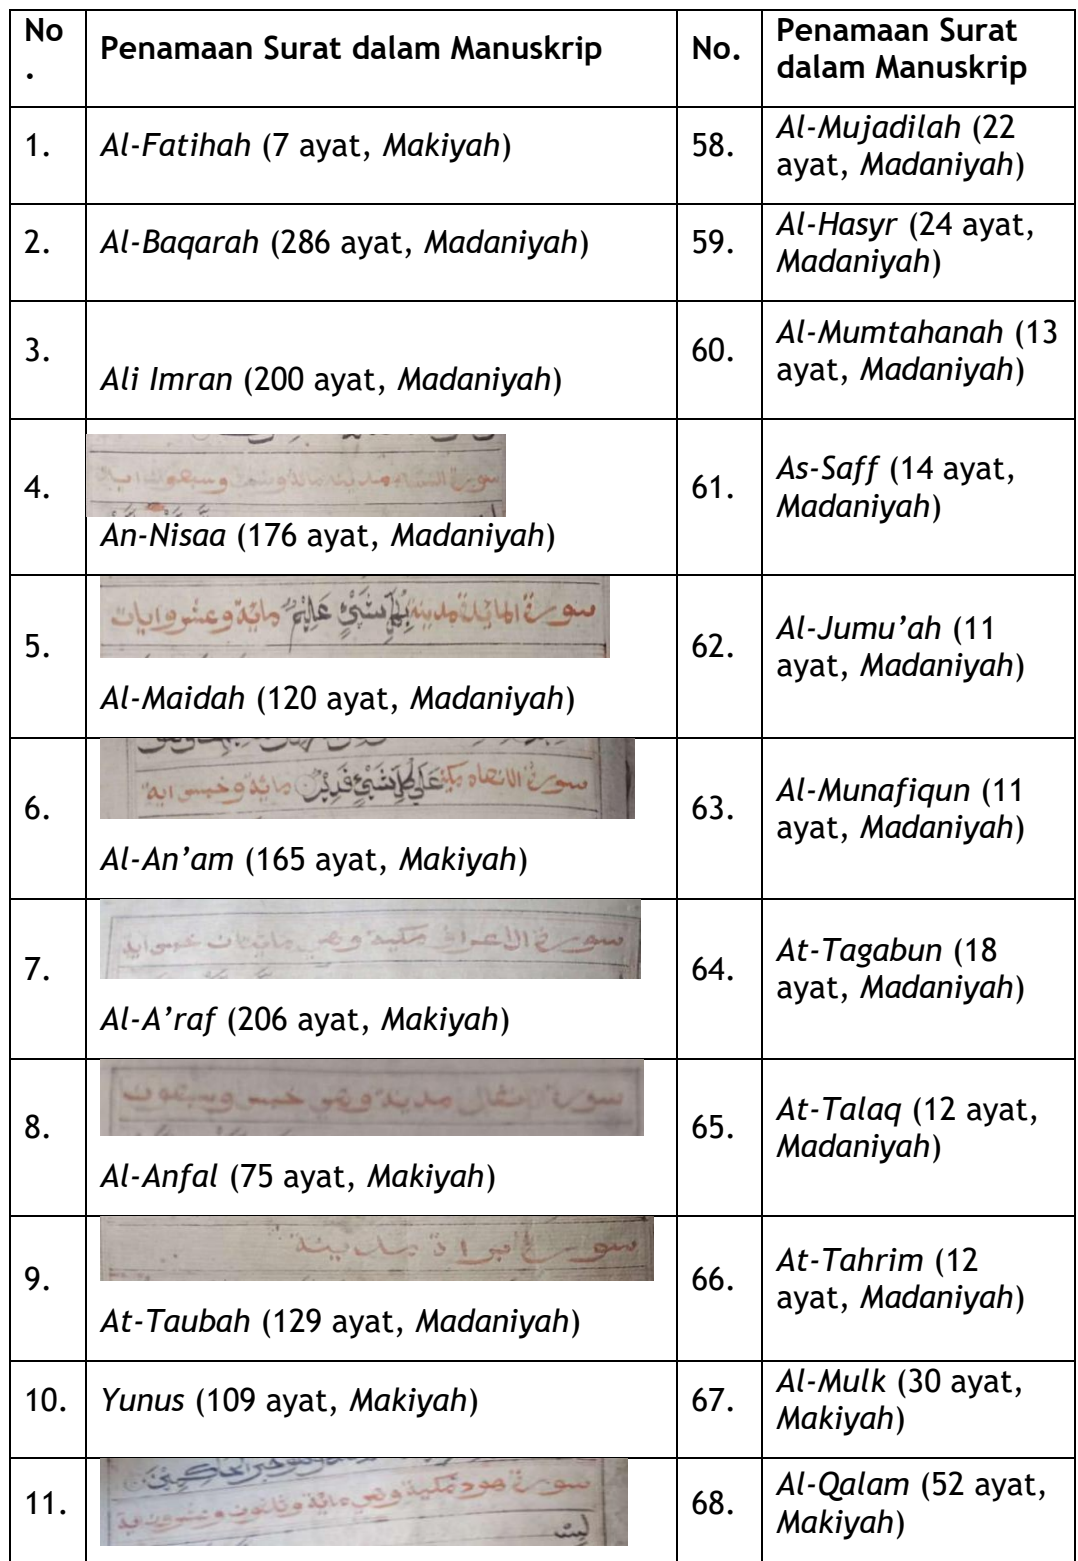 No. Penamaan Surat dalam Manuskrip No. Penamaan Surat dalam Manuskrip
1. Al-Fatihah (7 ayat, Makiyah) 58. Al-Mujadilah (22 ayat, Madaniyah)
2. Al-Baqarah (286 ayat, Madaniyah) 59. Al-Hasyr (24 ayat, Madaniyah)
3. Ali Imran (200 ayat, Madaniyah) 60. Al-Mumtahanah (13 ayat, Madaniyah)
4. سورة النساء مدينة مائة وسبعون اية
An-Nisaa (176 ayat, Madaniyah) 61. As-Saff (14 ayat, Madaniyah)
5. سورة المائدة مدينة بِكُلِّ شَيْءٍ عَلِيْمٌ مائة وعشروايات
Al-Maidah (120 ayat, Madaniyah) 62. Al-Jumu’ah (11 ayat, Madaniyah)
6. سورة الانعام مكية عَلَى كُلِّ شَيْءٍ قَدِيْرٌ مائة وخمس اية
Al-An’am (165 ayat, Makiyah) 63. Al-Munafiqun (11 ayat, Madaniyah)
7. سورة الاعراف مكية وهي مايتان خمس اية
Al-A’raf (206 ayat, Makiyah) 64. At-Tagabun (18 ayat, Madaniyah)
8. سورة مدينة وهي خمس وسبعون
Al-Anfal (75 ayat, Makiyah) 65. At-Talaq (12 ayat, Madaniyah)
9. سورة براة مدينة
At-Taubah (129 ayat, Madaniyah) 66. At-Tahrim (12 ayat, Madaniyah)
10. Yunus (109 ayat, Makiyah) 67. Al-Mulk (30 ayat, Makiyah)
11. سورة هود مكية وهي مائة وعشرون
68. Al-Qalam (52 ayat, Makiyah)